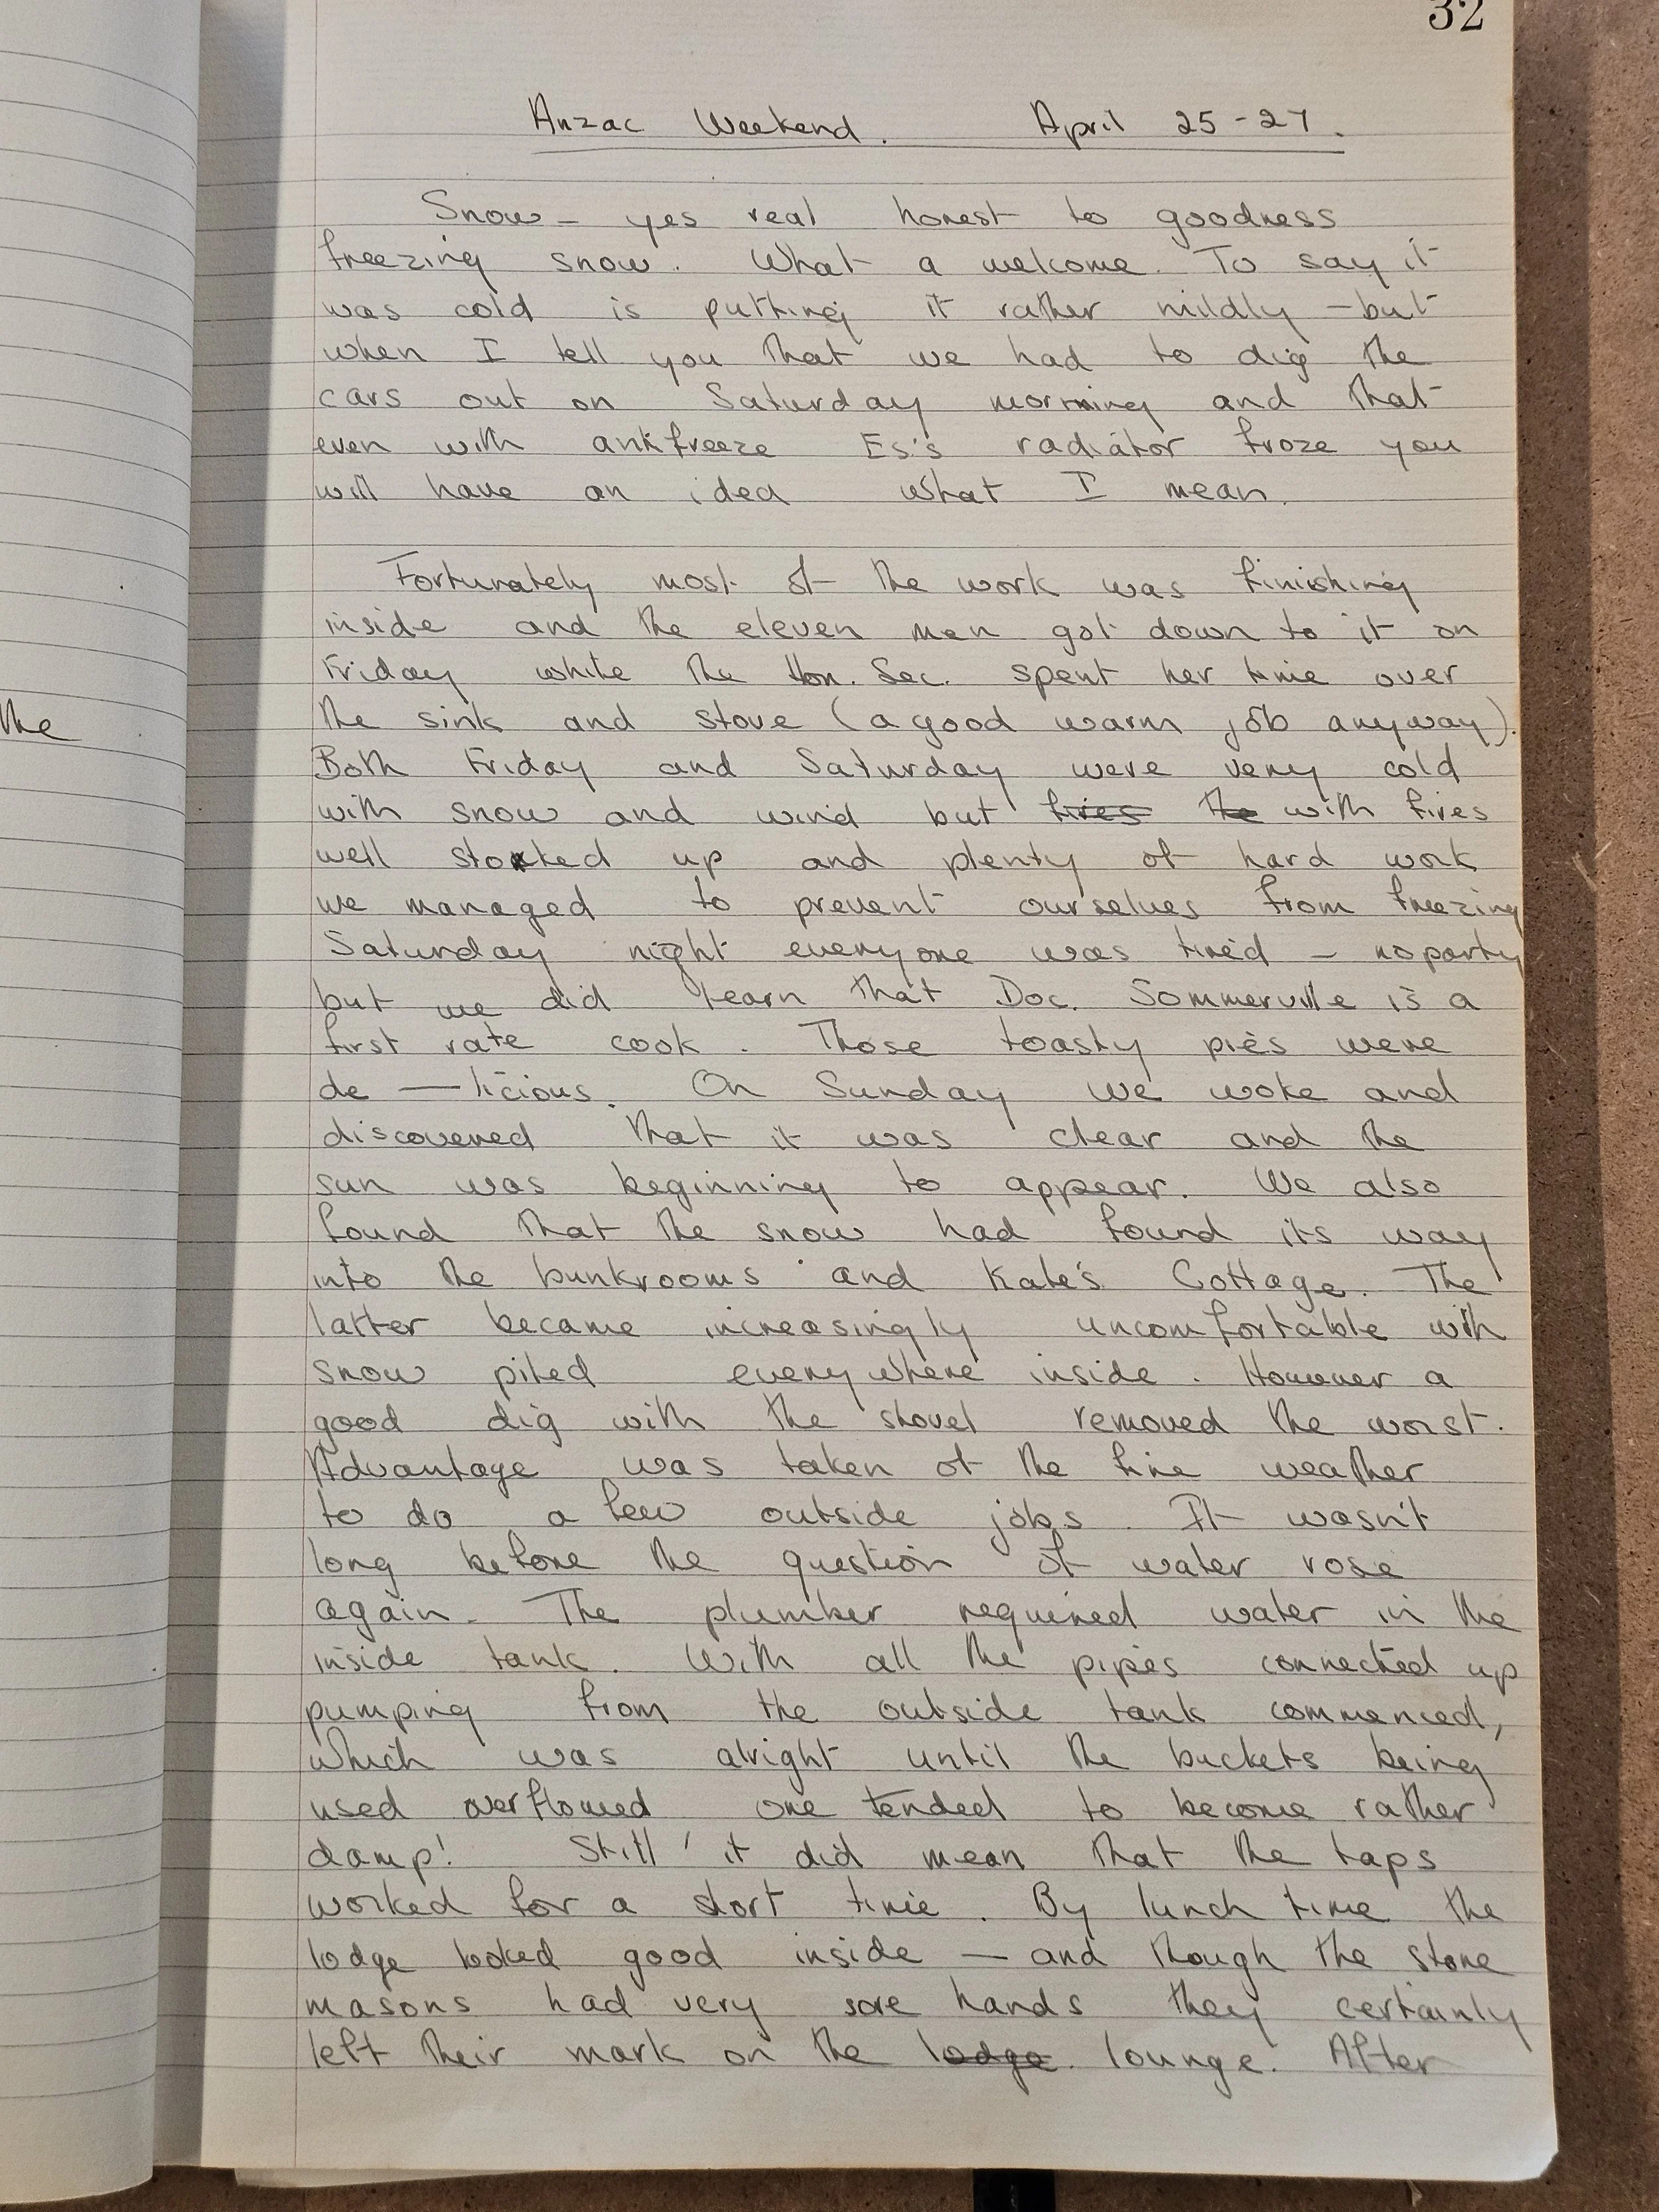 32
Anzac Weekend. April 25-27.
Snow - yes real honest to goodness
freezing snow. What a welcome. To say it
was cold is putting it rather mildly - but
when I tell you that we had to dig the
cars out on Saturday morning and that
even with antifreeze Es's radiator froze you
will have an idea what I mean.
Fortunately most of the work was finishing
inside and the eleven men got down to it on
Friday while the Hon. Sec. spent her time over
the sink and stove (a good warm job anyway).
the
Both Friday and Saturday were very cold
with snow and wind but fires the with fires
well stoked up and plenty of hard work
we managed to prevent ourselves from freezing
Saturday night everyone was tired - no party
but we did learn that Doc. Sommerville is a
first rate cook. Those toasty pies were
de — licious. On Sunday we woke and
discovered that it was clear and the
sun was beginning to appear. We also
found that the snow had found its way
into the bunkrooms and Kate's Cottage. The
latter became increasingly uncomfortable with
snow piled everywhere inside. However a
good dig with the shovel removed the worst.
Advantage was taken of the fine weather
to do a few outside jobs. It wasn't
long before the question of water rose
again. The plumber required water in the
inside tank. With all the pipes connected up
pumping from the outside tank commenced,
which was alright until the buckets being
used overflowed one tended to become rather
damp! Still it did mean that the taps
worked for a short time. By lunch time the
lodge looked good inside — and though the stone
masons had very sore hands they certainly
left their mark on the lodge. lounge. After